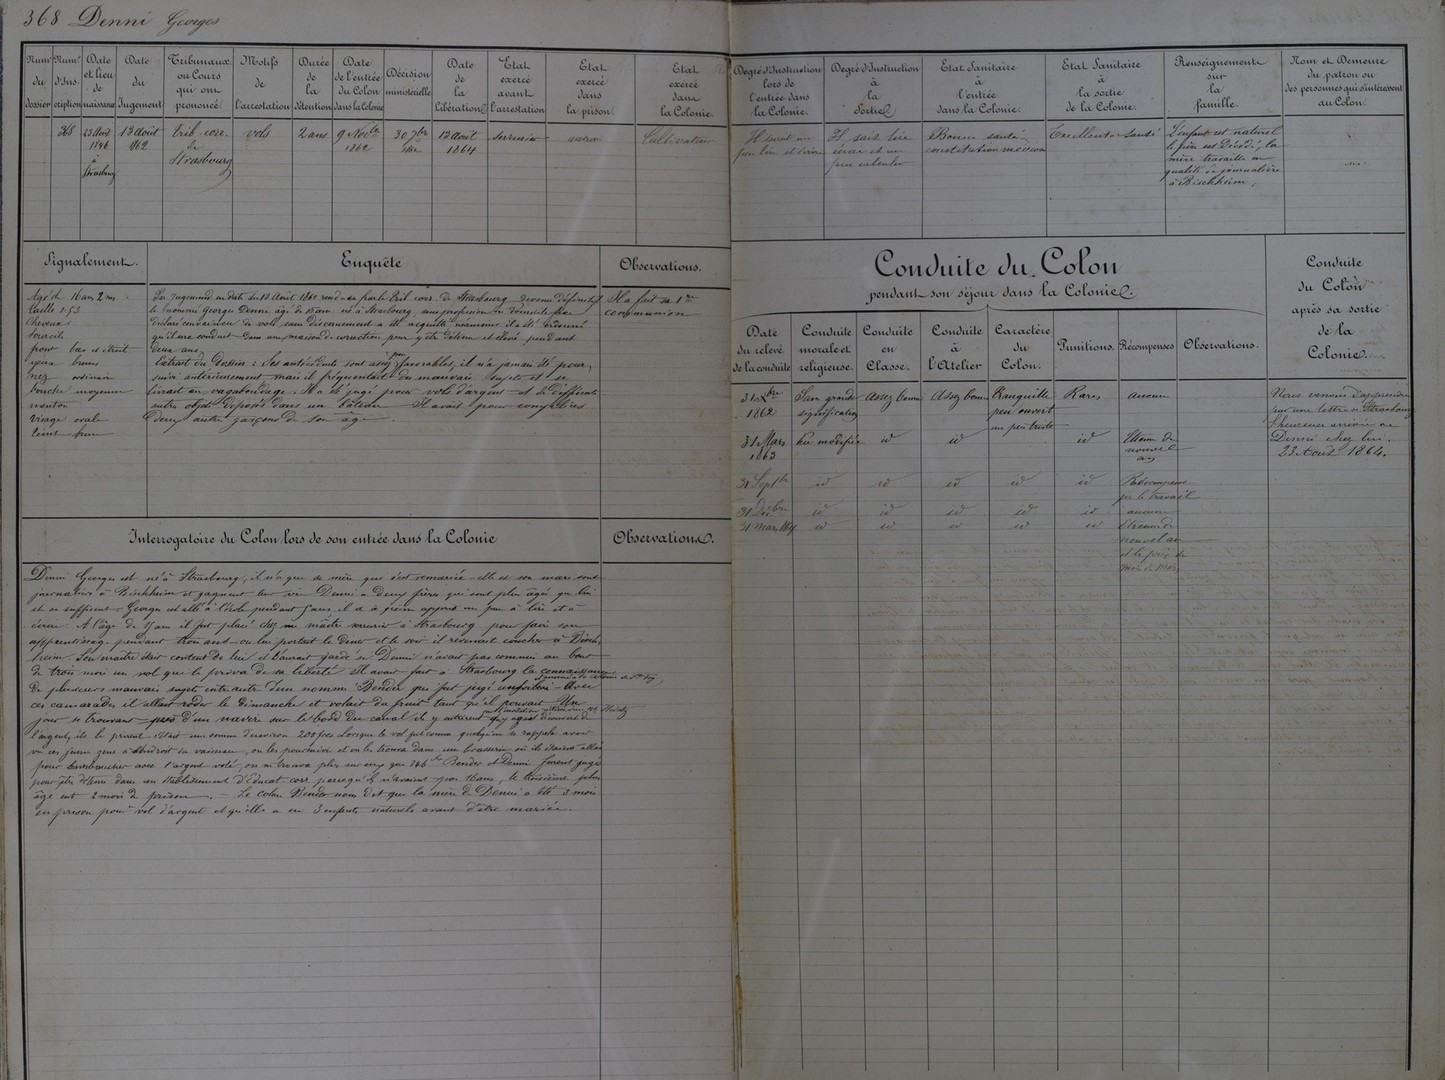 368 Denni Georges
Num° du dossier
Num° d'Inscription
Date et lieu de naissance
Date du Jugement
Tribunaux ou Cours qui ont prononcé
Motifs de l'arrestation
Durée de la détention
Date de l'entrée du Colon dans la Colonie
Décision ministérielle
Date de la Libération
Etat exercé avant l'arrestation
Etat exercé dans la prison
Etat exercé dans la Colonie
Degré d'Instruction lors de l'entrée dans la Colonie.
Degré d'Instruction à la Sortie
Etat Sanitaire à l'entrée dans la Colonie.
Etat Sanitaire à la sortie de la Colonie.
Renseignements sur la famille.
Nom et Demeure du patron ou des personnes qui s'intéressent au Colon.
368
23 Août 1846 à Strasbourg
13 Août 1862
Trib. corr. de Strasbourg
vols
2 ans
9 Novbre 1862
30 7bre
13 Août 1864
Serrurier
aucun
Cultivateur
Il sait un peu lire et écrire
Il sait lire écrire et un peu calculer
Bonne santé constitution moyenne
Excellente Santé
L'enfant est naturel
le père est décédé, la
mère travaille en
qualité de journalière
à Bischheim.
Signalement.
Enquête
Observations.
Agé de 16 ans 2 ms
Taille 1.53
Cheveux
Sourcils
front bas et étroit
yeux bruns
nez ordinaire
bouche moyenne
menton
Visage ovale
teint brun
Par Jugement en date du 13 Août 1862 rendu par le Trib. corr. de Strasbourg devenu définitif
le nommé Georges Denni âgé de 15 ans né à Strasbourg, sans profession
déclaré convaincu de vols sans discernement a été acquitté néanmoins il a été ordonné
qu'il sera conduit dans une maison de correction pour y être détenu et élevé pendant
deux ans.
Extrait du Dossier : Ses antécédents sont assez peu favorables, il n'a jamais été pour-
suivi antérieurement mais il fréquentait de mauvais sujets et se
livrait au vagabondage. Il a été jugé pour vols d'argent et de différents
autres objets déposés dans un bateau. Il avait pour complices
deux autres garçons de son âge.
Il a fait sa 1re
communion
Conduite du Colon
pendant son séjour dans la Colonie.
Date du relevé de la conduite
Conduite morale et religieuse.
Conduite en Classe.
Conduite à l'Atelier
Caractère du Colon.
Punitions.
Récompenses
Observations.
Conduite du Colon après sa sortie de la Colonie.
31 Xbre 1862
Sans grande signification
Assez bonne
Assez bonne
Tranquille peu ouvert un peu triste
Rares
aucune
31 Mars 1863
Peu modifiée
id
id
id
Etrenne de nouvel an
31 Septbre
id
id
id
id
id
Récompense pr le travail
31 Décbre
id
id
id
id
id
aucune
31 Mars 1864
id
id
id
id
id
Etrenne de nouvel an et le prix de mois de Mars
Nous venons d'apprendre
par une lettre de Strasbourg
l'heureuse arrivée de
Denni chez lui.
23 Août 1864.
Interrogatoire du Colon lors de son entrée dans la Colonie
Observations.
Denni Georges est né à Strasbourg, il n'a que sa mère qui s'est remariée - elle et son mari sont
journaliers à Bischheim et gagnent leur vie. Denni a deux frères qui sont plus âgés que lui
et se suffisent. Georges est allé à l'école pendant 5 ans il a à peine appris un peu à lire et à
écrire. A l'âge de 15 ans il fut placé chez un maître serrurier à Strasbourg pour faire son
apprentissage pendant trois ans - on lui portait le diner et le soir il revenait coucher à Bisch-
heim. Son maître était content de lui et l'aurait gardé si Denni n'avait pas commis au bout
de trois mois un vol qui le priva de sa liberté. Il avait fait à Strasbourg la connaissance
de plusieurs mauvais sujets entr'autre d'un nommé Bender qui fut jugé Avec
ces camarades il allait rôder le dimanche et volait du fruit tant qu'il pouvait. Un
jour se trouvant près d'un navire sur le bord du canal ils y entrèrent
l'argent, ils le prirent. C'était une somme d'environ 200 frcs. Lorsque le vol fut connu quelqu'un se rappela avoir
vu ces jeunes gens à l'endroit du vaisseau, on les poursuivit et on les trouva dans une brasserie où ils étaient allés
pour avec l'argent volé, on ne trouva plus sur eux que 146 frcs Bender et Denni furent jugés
pour être détenus dans un établissement d'Educat. corr. parcequ'ils n'avaient pas 16 ans, le troisième plus
âgé eut 2 mois de prison. - Le colon Bender nous dit que la mère de Denni a été 3 mois
en prison pour vol d'argent et qu'elle a eu 3 enfants naturels avant d'être mariée.